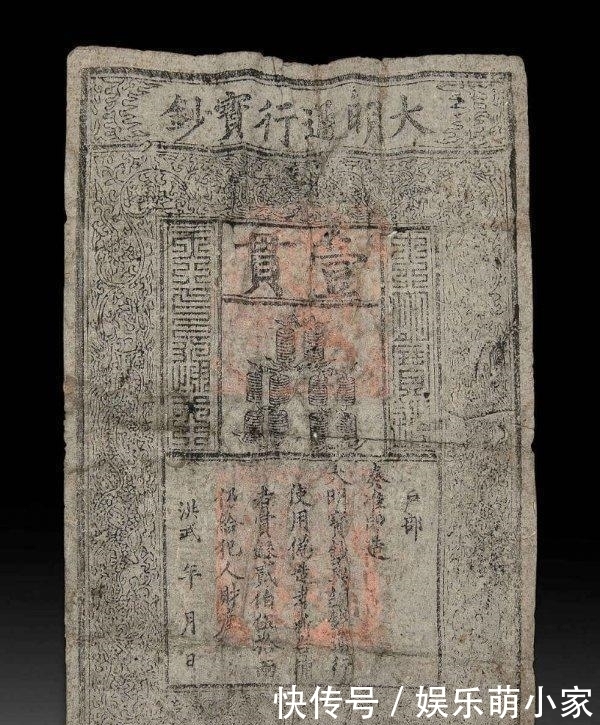 大明通行寶鈔
壹貫
户部
奏准印造
大明寶鈔與銅錢通行
使用偽造者斬告捕
者賞銀貳伯伍拾兩
仍給犯人財產
洪武 年 月 日
快传号/娱乐萌小家